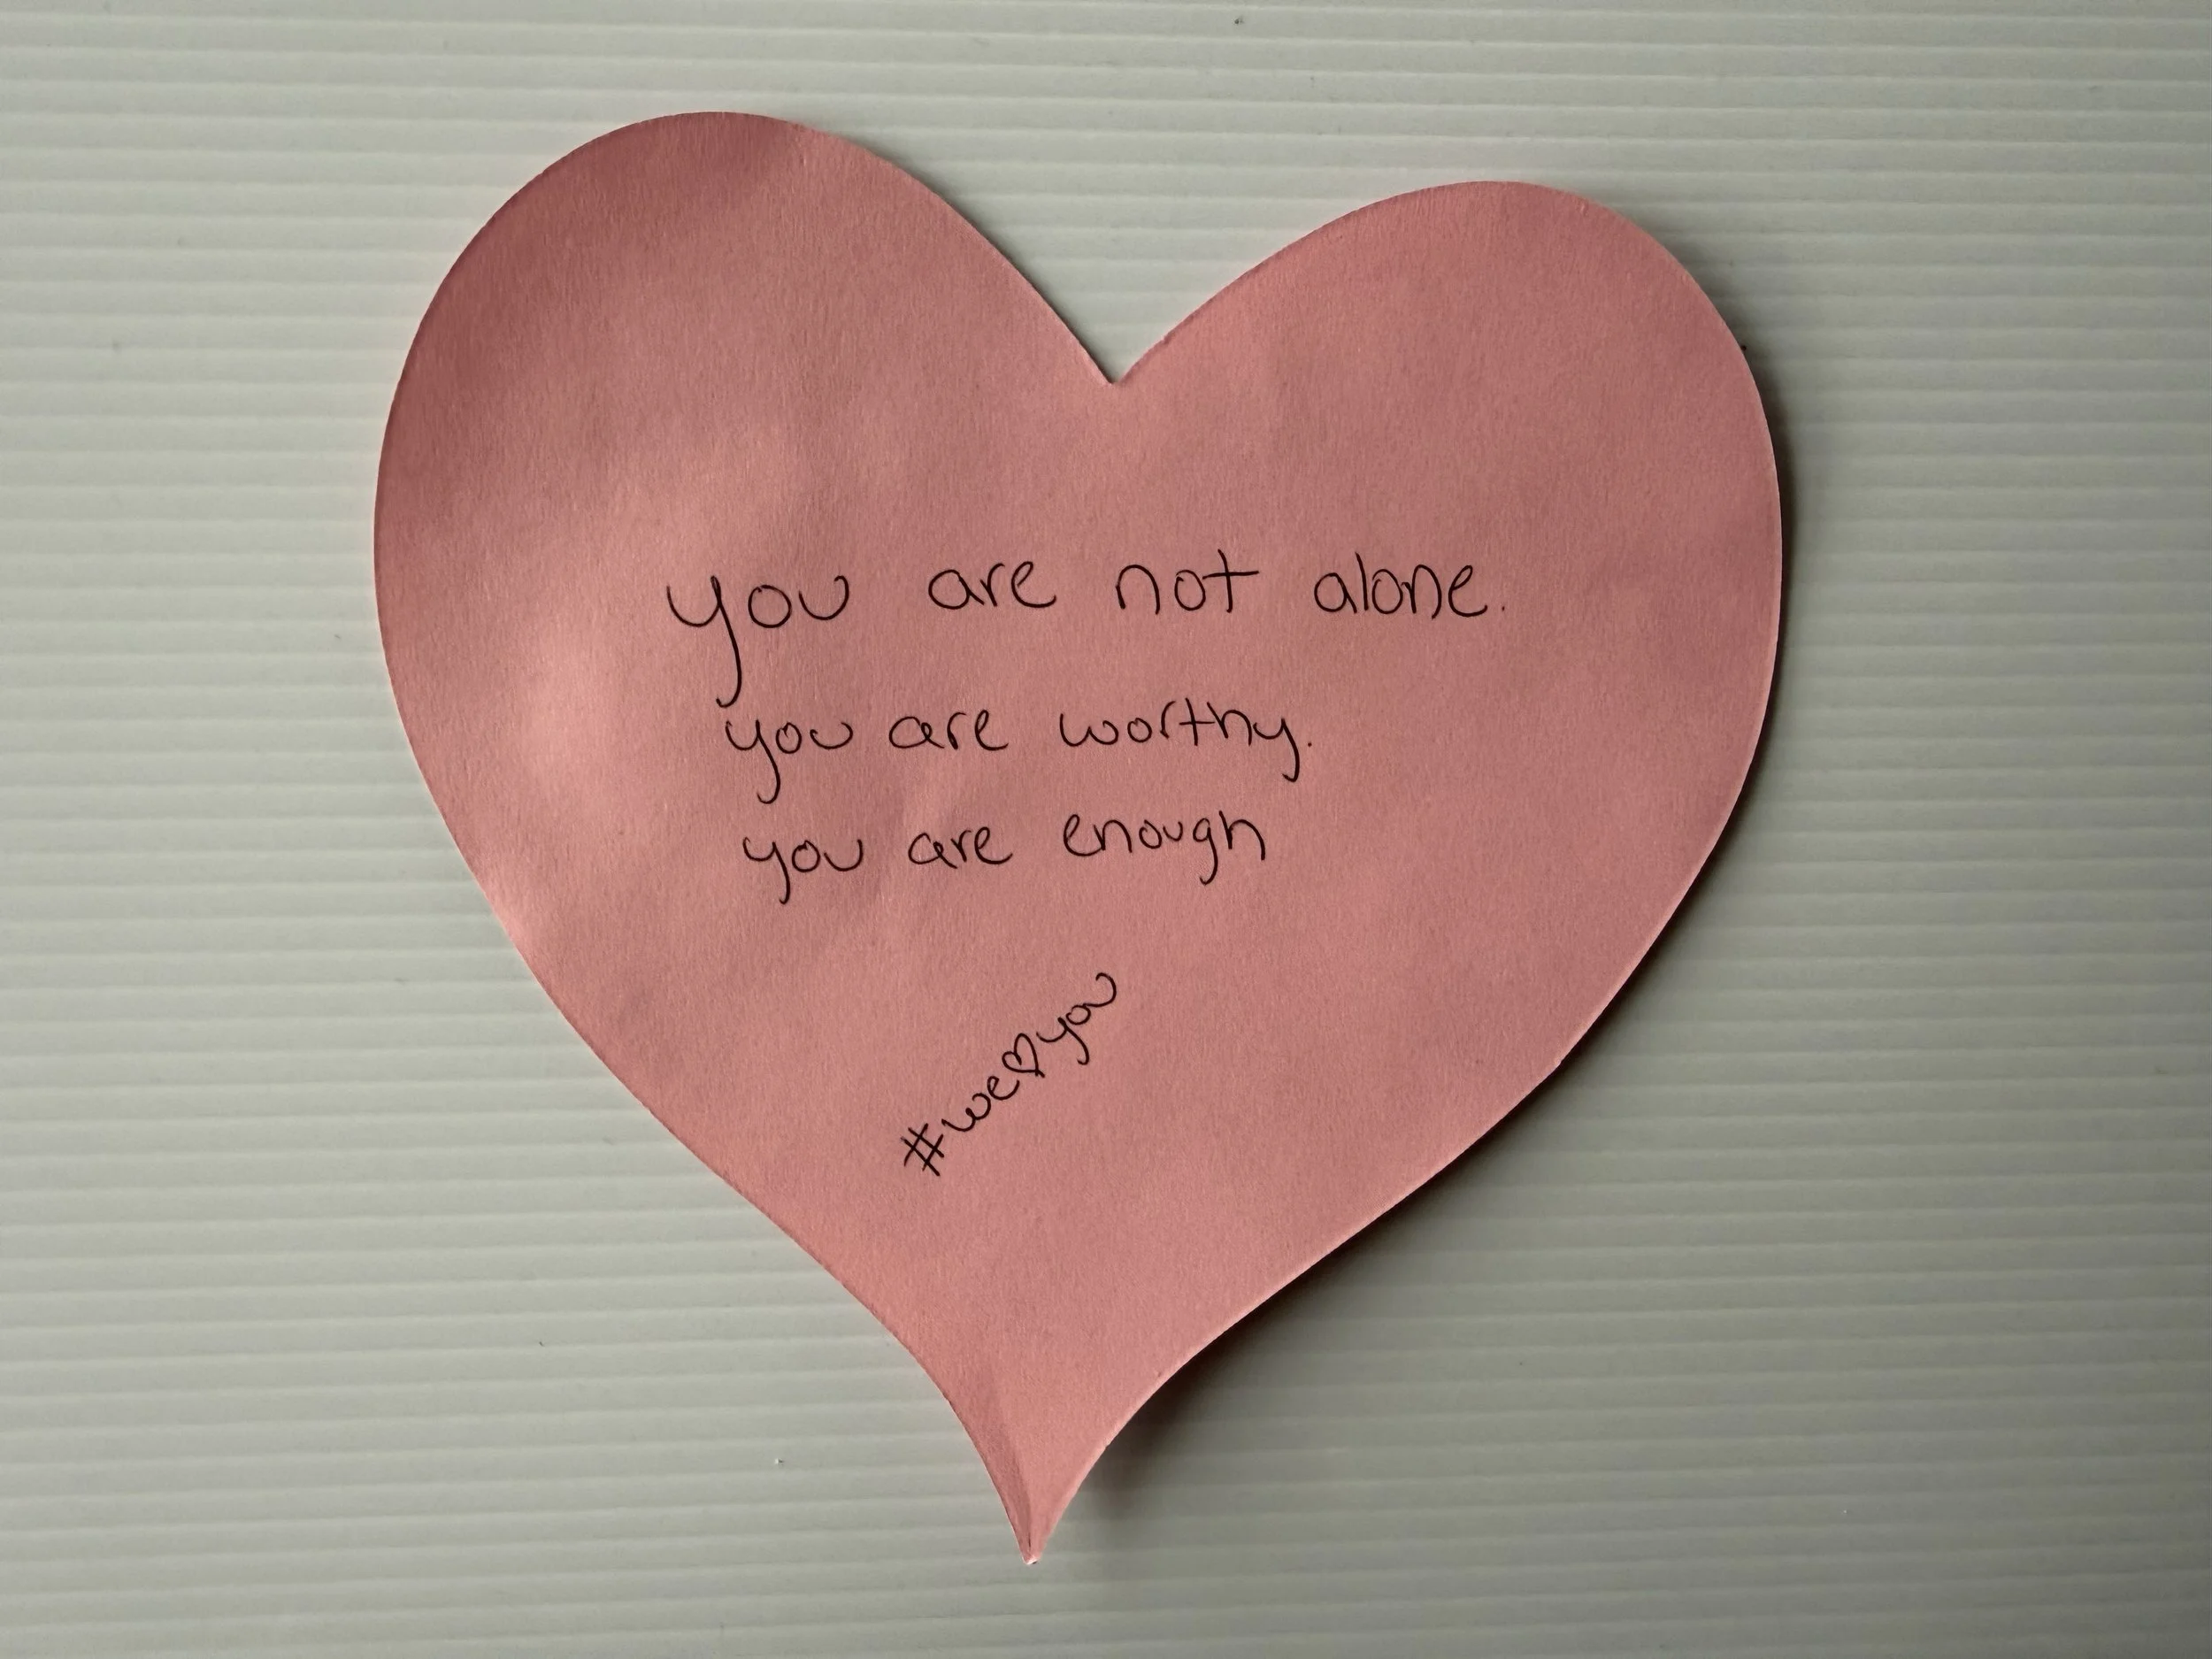 you are not alone.
you are worthy.
you are enough
#we♡you